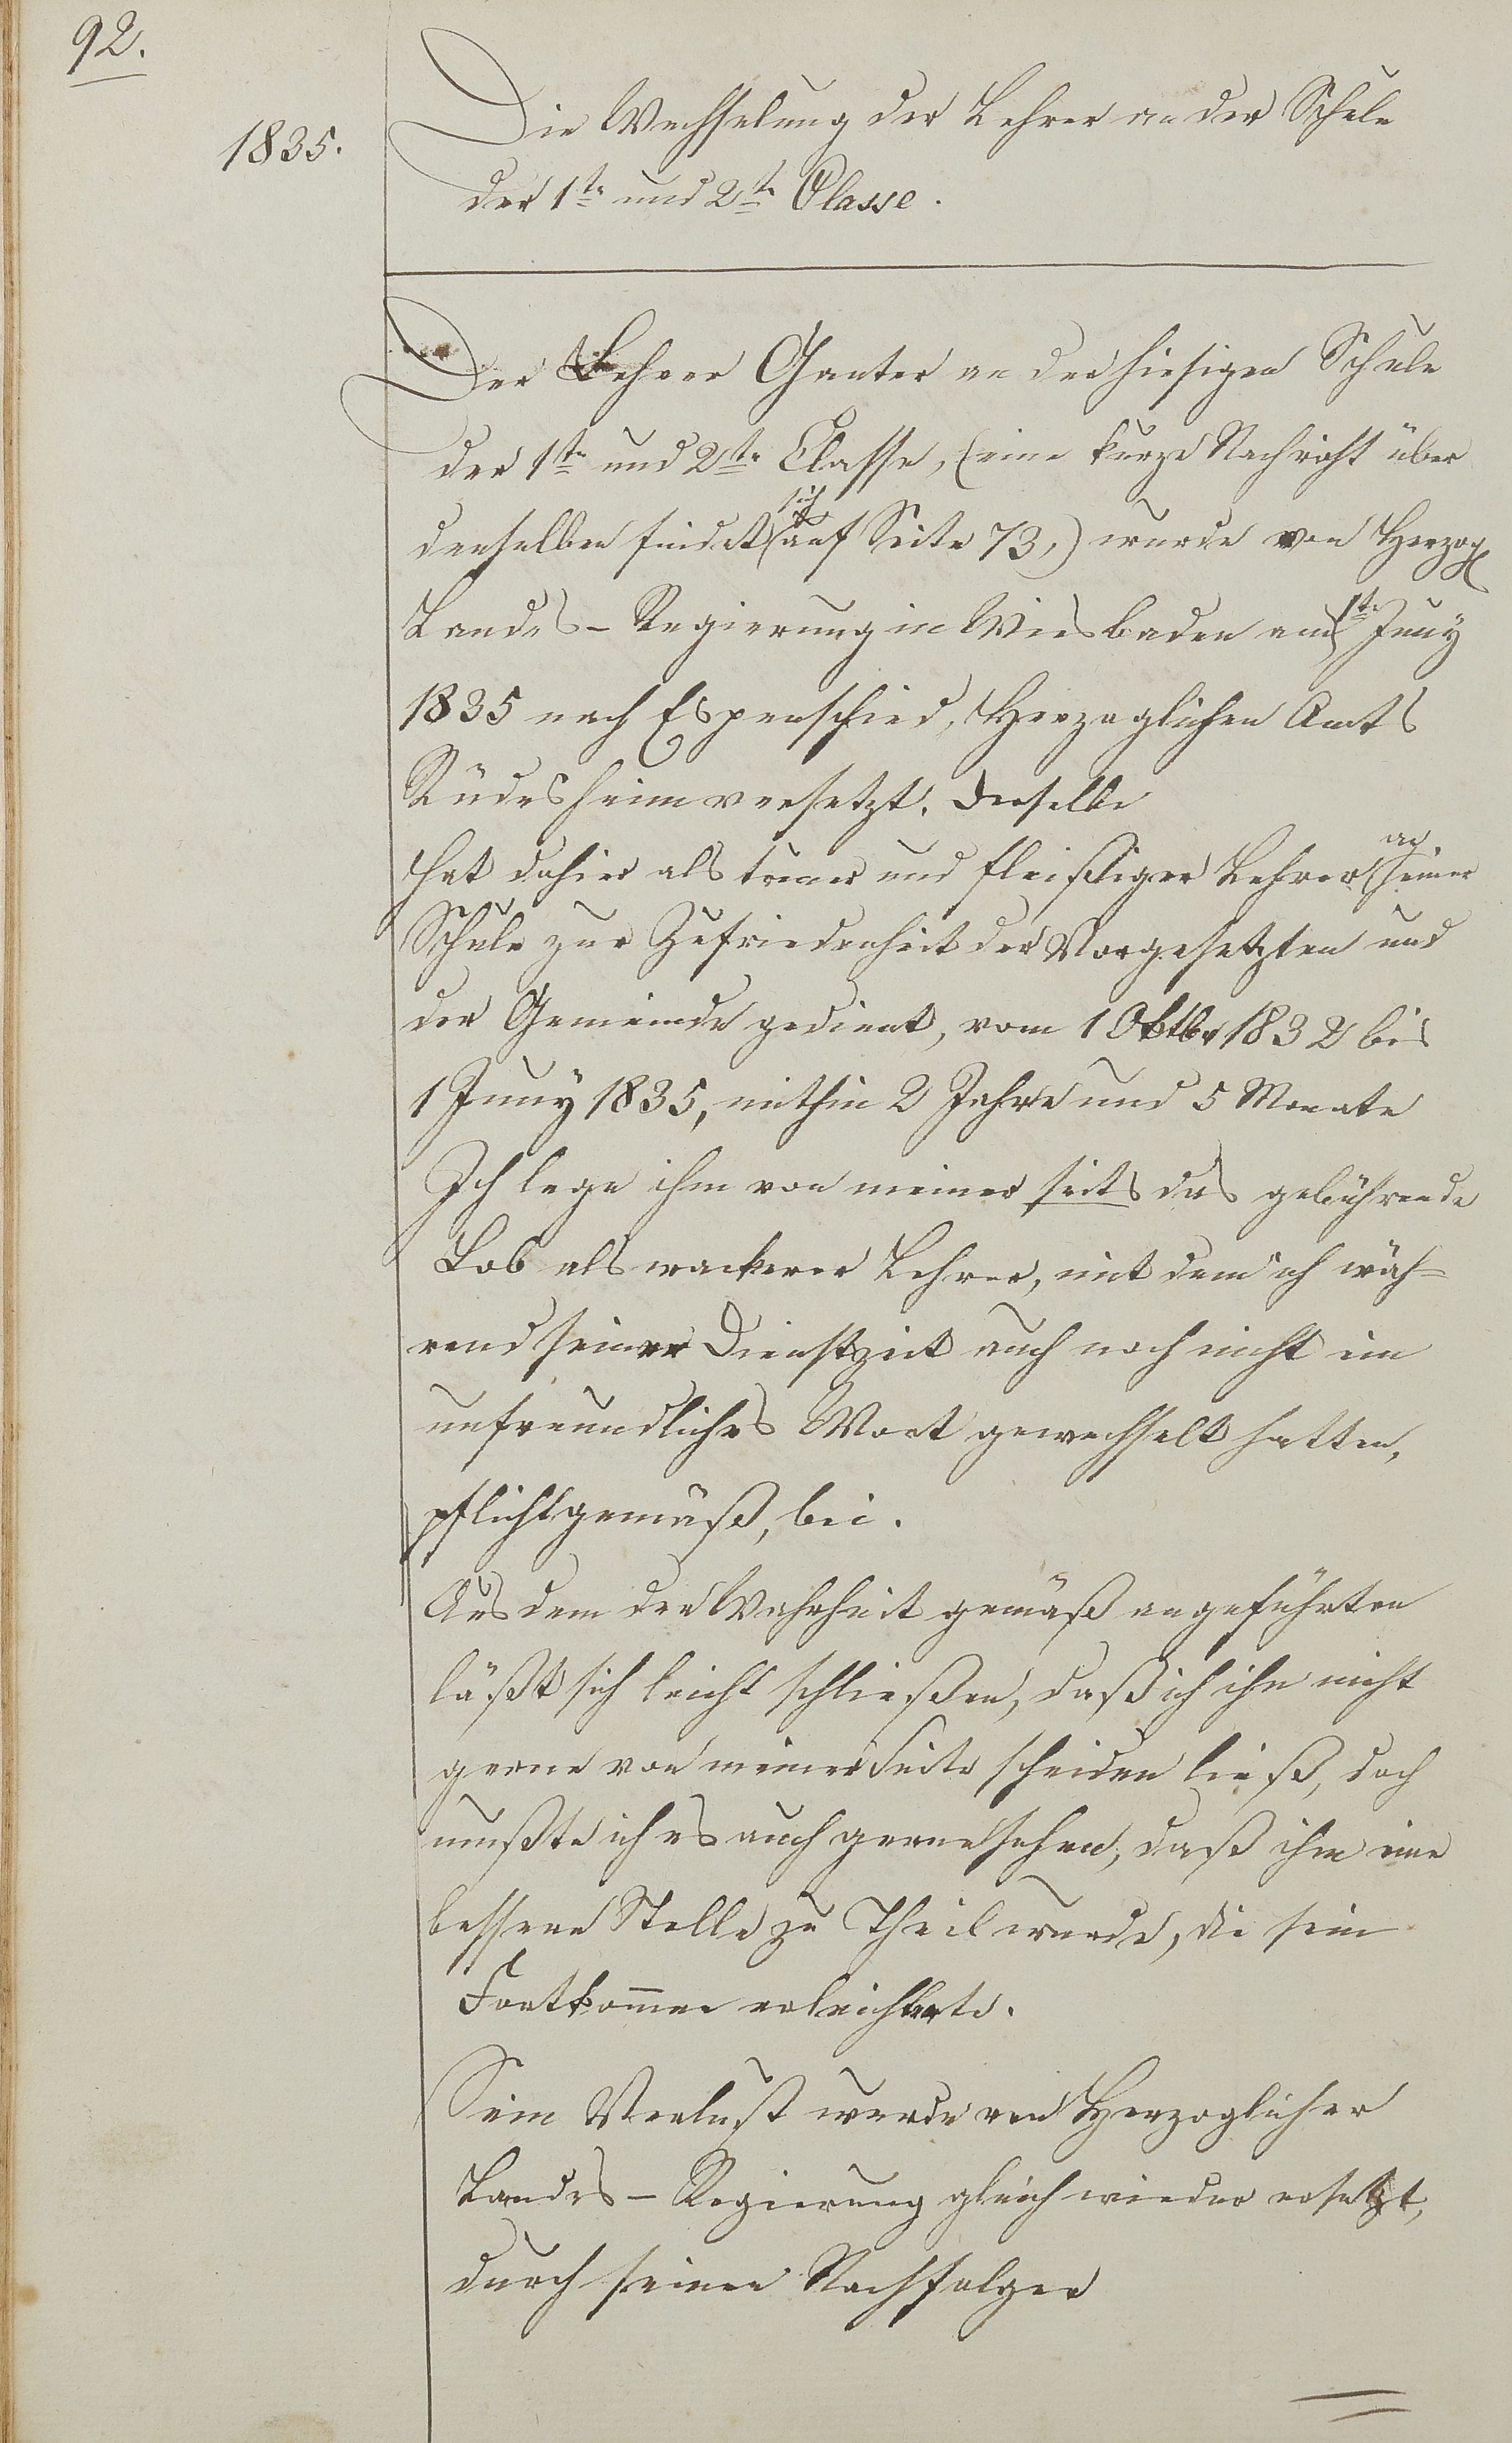 92.
1835.
Die Wechselung der Lehrer an der Schule
der 1te und 2te Classe.
Der Lehrer Ganter an der hiesigen Schule
der 1te und 2te Classe, (eine kurze Nachricht über
denselben findet sich auf Seite 73,) wurde von Herzogl
Landes-Regierung in Wiesbaden am 1te Juny
1835 nach Espenschied, Herzoglichen Amts
Rüdesheim versetzt. Derselbe
hat dahier als treuer und fleißiger Lehrer an seiner
Schule zur Zufriedenheit der Vorgesetzten und
der Gemeinde gedient, vom 1 Oktbr 1832 bis
1 Juny 1835, mithin 2 Jahre und 5 Monate
Ich lege ihm von meiner seits das gebührende
Lob als wackerer Lehrer, mit dem ich wäh=
rend seiner Dienstzeit auch noch nicht ein
unfreundliches Wort gewechselt hatten,
pflichtgemäß, bei.
Aus dem der Wahrheit gemäß angeführten
läßt sich leicht schließen, daß ich ihn nicht
gerne von meiner Seite scheiden ließ, doch
mußte ich es auch gerne sehen, daß ihm eine
bessere Stelle zu Theil wurde, die sein
Fortkommen erleichterte.
Sein Verlust wurde von Herzoglicher
Landes-Regierung gleich wieder ersetzt,
durch seinen Nachfolger